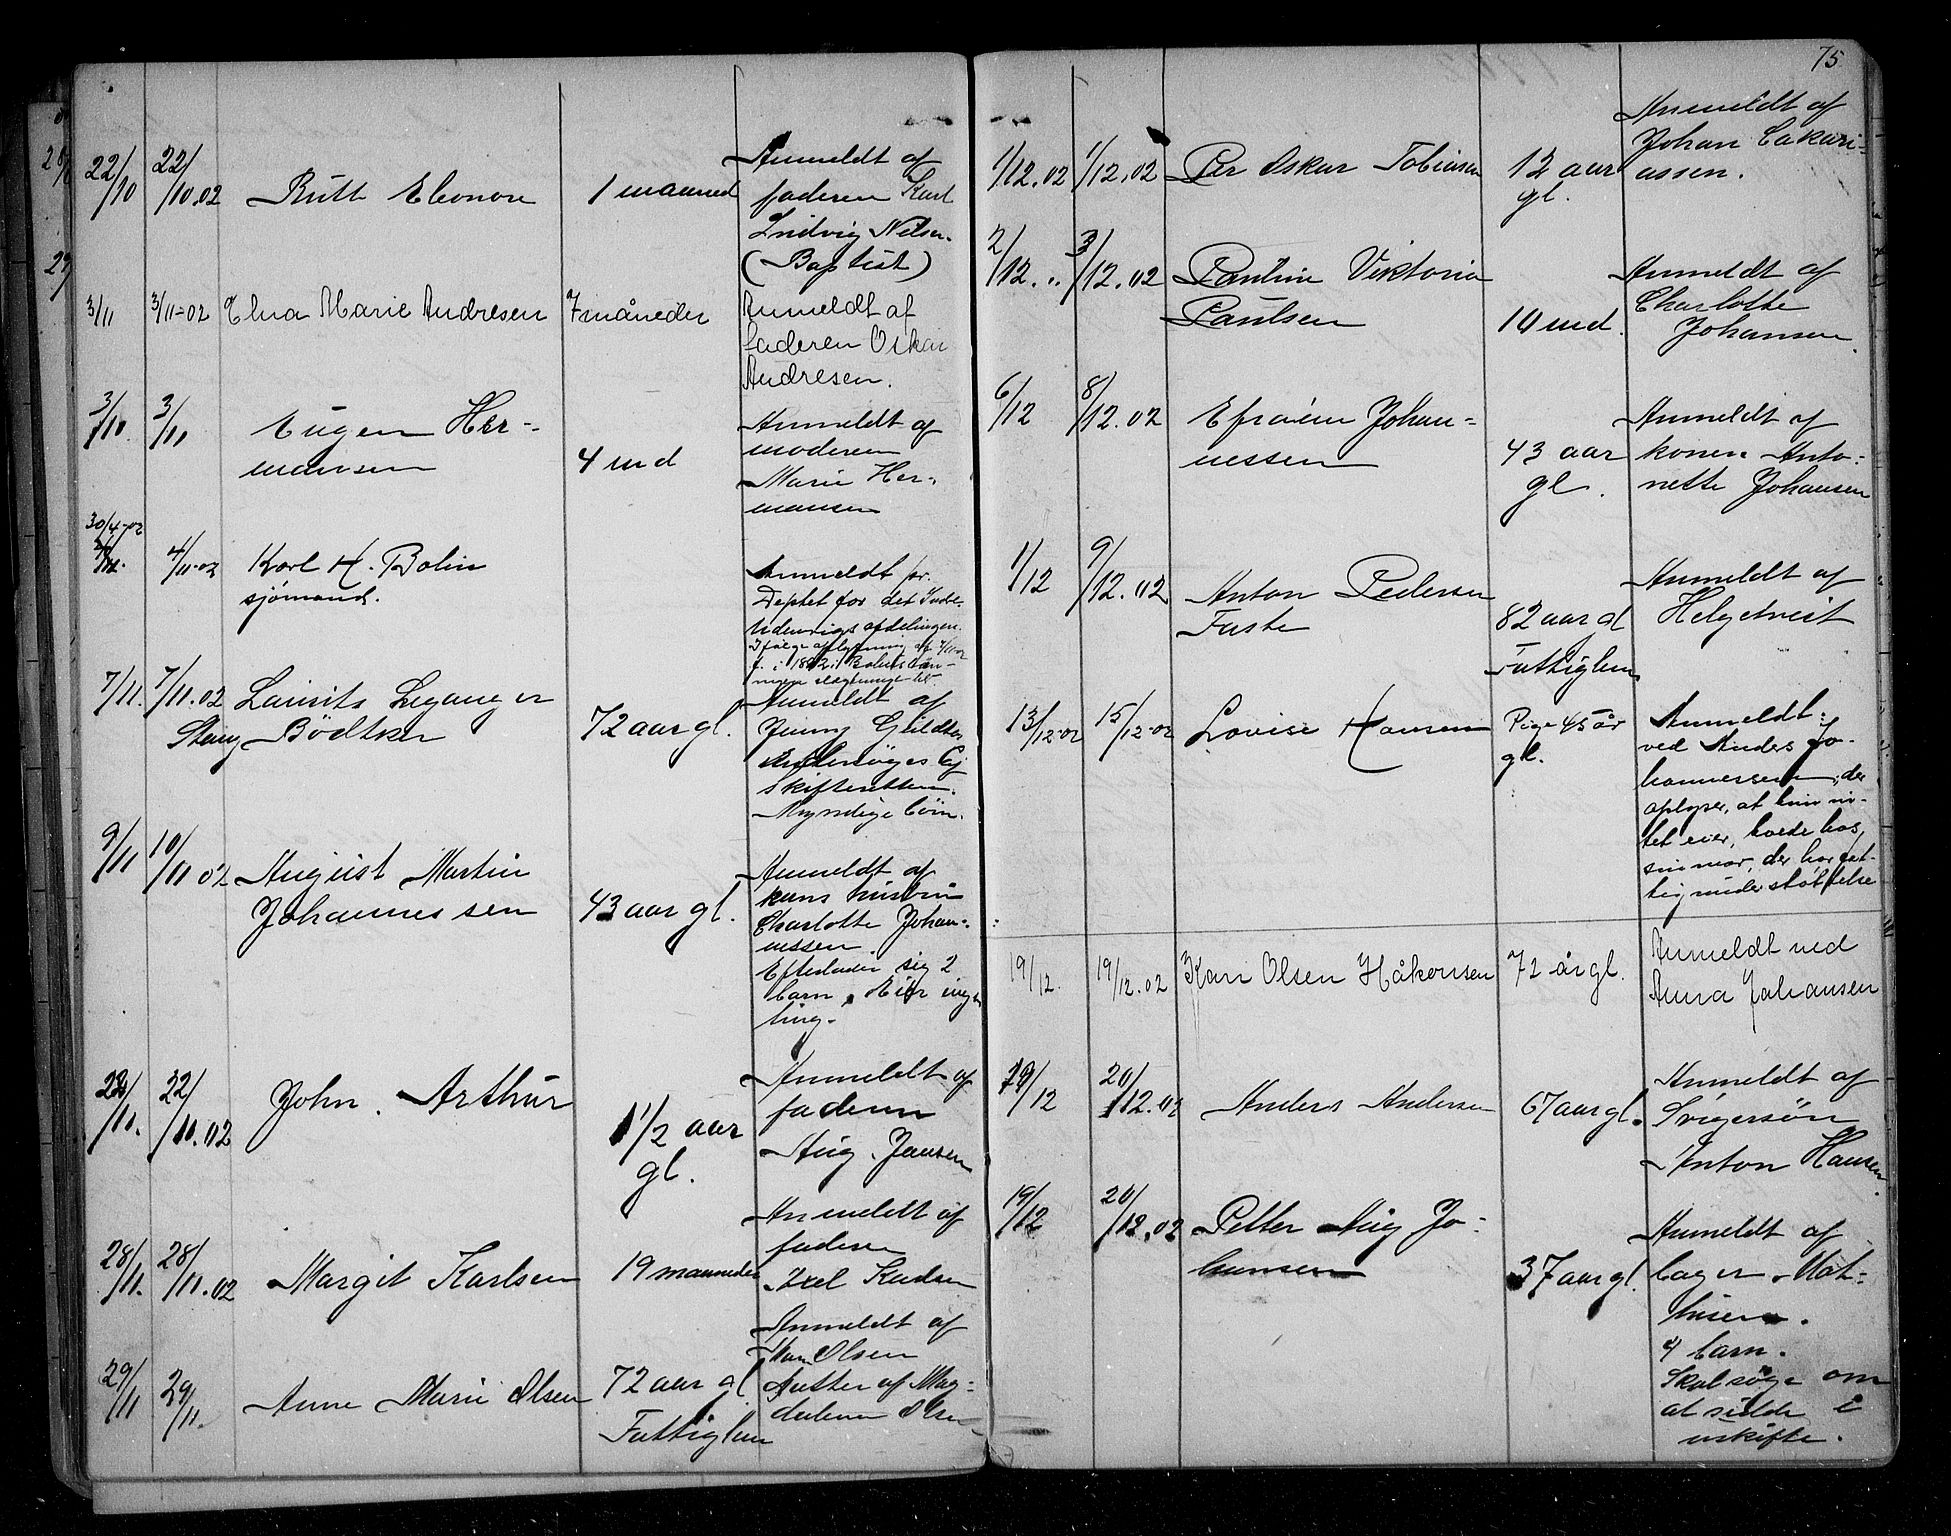 22/10 22/10.02 Ruth Elenore 1 maaned Anmeldt af
faderen Karl
Ludvig Nelsen.
(Baptist)
3/11 3/11-02 Elna Marie Andresen 7 måneder Anmeldt af
faderen Oskar
Andresen.
3/10. 3/11 Eugen Her-
mansen 4 md Anmeldt af
moderen
Marie Her-
mansen
30/4-02
4/11-02 Karl H. Bolin
sjømand. Anmeldt fr.
Deptet for det Indre.
Udenrigsafdelingen.
7/11. 7/11.02 Lauritz Leganger
Stang Bödtker 72 aar gl. Anmeldt af
Jenny
Skifteretten.
Myndige börn.
9/11 10/11 02 August Martin
Johannessen 43 aar gl. Anmeldt af
hans hustru
Charlotte Johan-
nessen.
Efterlader sig 2
barn. Eier ingen
ting.
22/11. 22/11.02 John. Arthur 1 1/2 aar
gl. Anmeldt af
faderen
Aug. Jansen
28/11. 28/11.02 Margit Karlsen 19 maaneder Anmeldt af
faderen
Axel
29/11 29/11. Anne Marie Olsen 72 aar gl
Fattiglem Anmeldt af
Olsen
Datter af Mag-
dalena Olsen
75
1/12.02 1/12.02 Per Oskar Tobiasen 12 aar
gl. Anmeldt af
Johan Cakari-
assen.
2/12.. 3/12.02 Pauline Viktoria
Paulsen 10 md. Anmeldt af
Charlotte
Johansen.
6/12 8/12.02 Efraim Johan-
nessen 43 aar
gl. Anmeldt af
konen Anto-
nette Johansen
1/12 9/12.02 Anton Pedersen
Faste 82 aar gl
Fattiglem Anmeldt af
Helgetveit
13/12-02 15/12-02 Lovise Hansen Pige 45 år
gl. Anmeldt
ved Anders Jo-
hannessen, der
oplyser, at hun in-
tet eier, boede hos
sin mor, der har fat-
tigunderstøttelse
19/12. 19/12.02 Kari Olsen Håkonsen 72 år gl. Anmeldt ved
Anna Johansen
19/12 20/12.02 Anders Andersen 67 aar gl. Anmeldt af
Svigersön
Anton Hansen.
19/12 20/12.02 Petter Aug Jo-
hansen 37 aar gl. Anmeldt af
bager Mat-
hisen.
4 barn.
Skal søge om
at sidde i
uskifte.